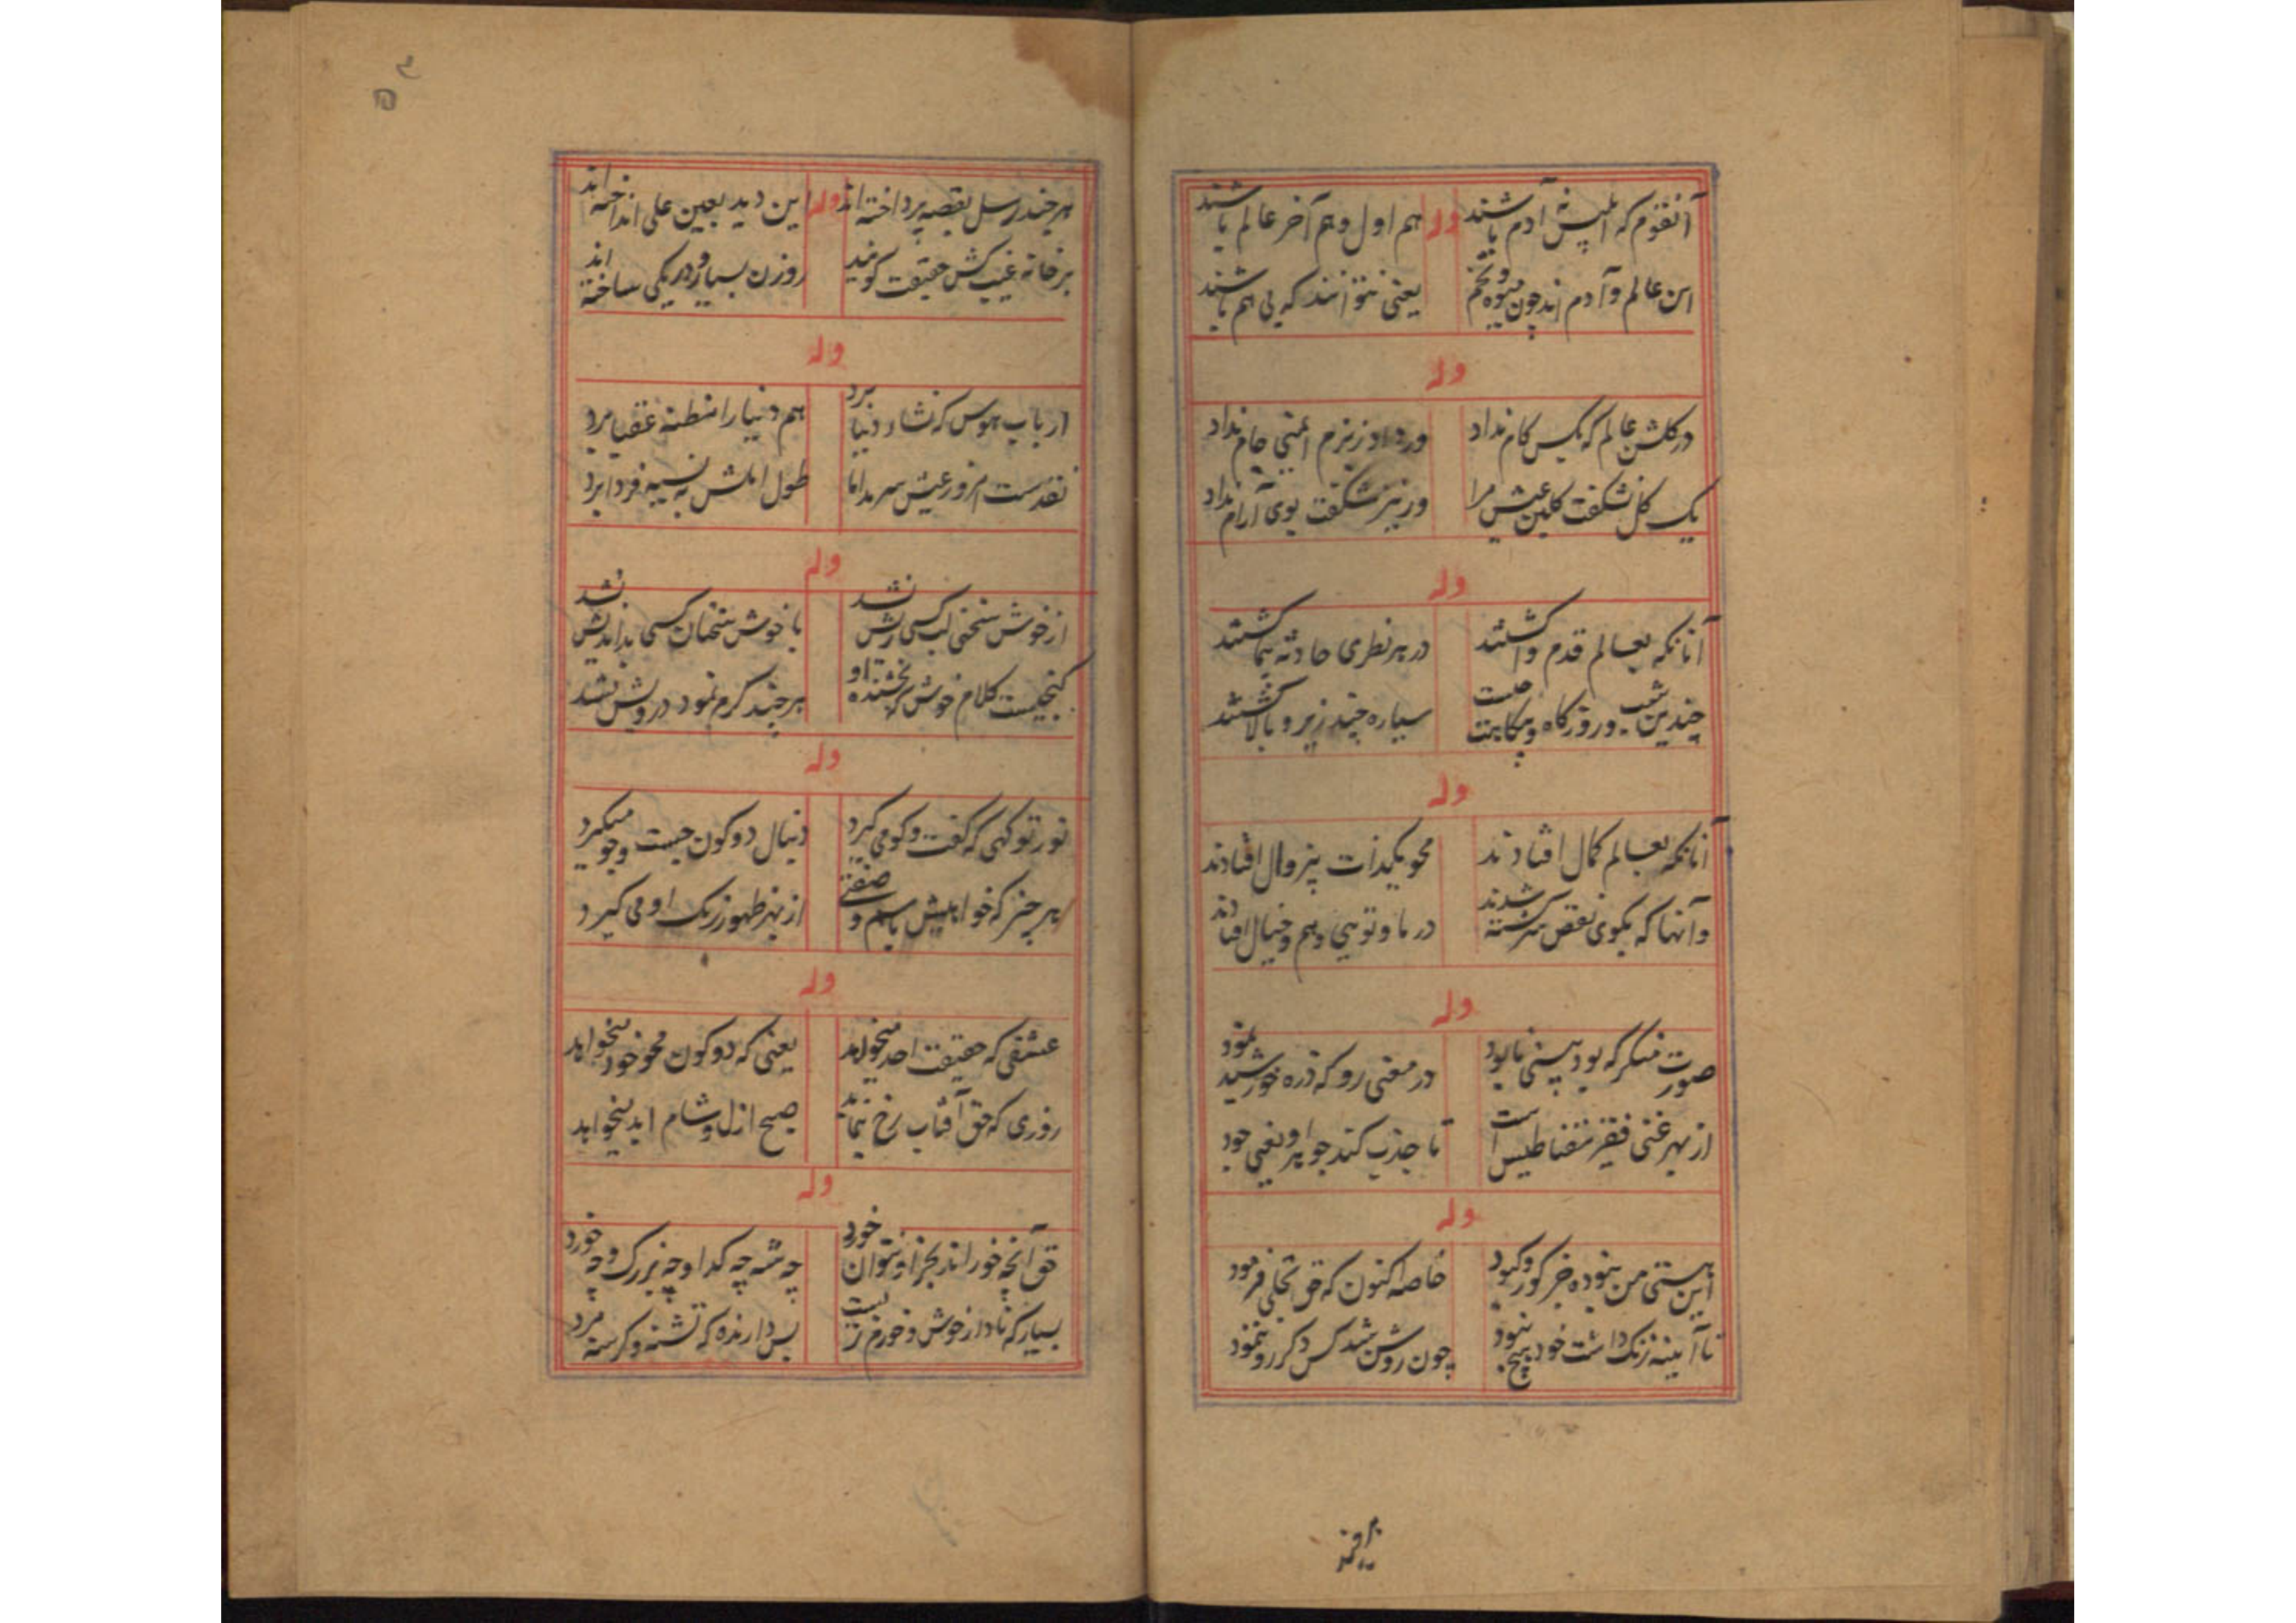 آنقوم که ابلیس نه آدم باشند وله هم اول و هم آخر عالم باشند
این عالم و آدم اند چون میوه و تخم یعنی نتوانند که بی هم باشند
وله
در گلشن عالم که یکس کام نداد ور داد ز بزم ایمنی جام نداد
یک گل نشکفت گلبن عیش مرا ور نیز شکفت بوی آرام نداد
وله
آنانکه بعالم قدم واگشتند در هر نظری حادثه پیما گشتند
چندین شب و روز گاه و بیگاهت سیاره چند زیر و بالا گشتند
وله
آنانکه بعالم کمال افتادند محو یکذات بیزوال افتادند
وآنها که بکوی نقص سرگشته شدند در ما و توئی و هم و خیال افتادند
وله
صورت منگر که بود بینی نابود در معنی رو که ذره خورشید نمود
از بهر غنی فقیر مقناطیس است تا جذب کند جواهر و یعنی جود
وله
این هستی من نبوده جز کور و کبود خاصه اکنون که حق تجلی فرمود
تا آئینه زنگ داشت خود هیچ نبود چون روشن شد کس دگر رو ننمود
هر چند رسل بقصه پرداخته اند وله این دید بعین علی انداخته اند
هر خانه غیب کش حقیقت گویند روزن بسیار و در یکی ساخته اند
وله
ارباب هوس که نشاء دنیا برد هم دنیا را مظنه عقبا برد
نقدست امروز عیش سرمد اما طول املش به نسیه فردا برد
وله
از خوش سخنی لب کسی ریش نشد با خوش سخنان کسی بداندیش نشد
گنجیست کلام خوش که بخشنده او هر چند کرم نمود درویش نشد
وله
نور تو گهی که گفت و گو میگیرد دنبال دو کون جست و جو میگیرد
هر چیز که خواهیش باسم و صفتی از بهر ظهور رنگ او می گیرد
وله
عشقی که حقیقت احد میخواهد یعنی که دو کون محو خود میخواهد
روزی که حق آفتاب رخ بنماید صبح ازل و شام ابد میخواهد
وله
حق آنچه خوراند بجز او نتوان خورد چه شه چه گدا و چه بزرگ و چه خورد
بسیار که نادار خوش و خورم زیست بس دارنده که تشنه و گرسنه مرد